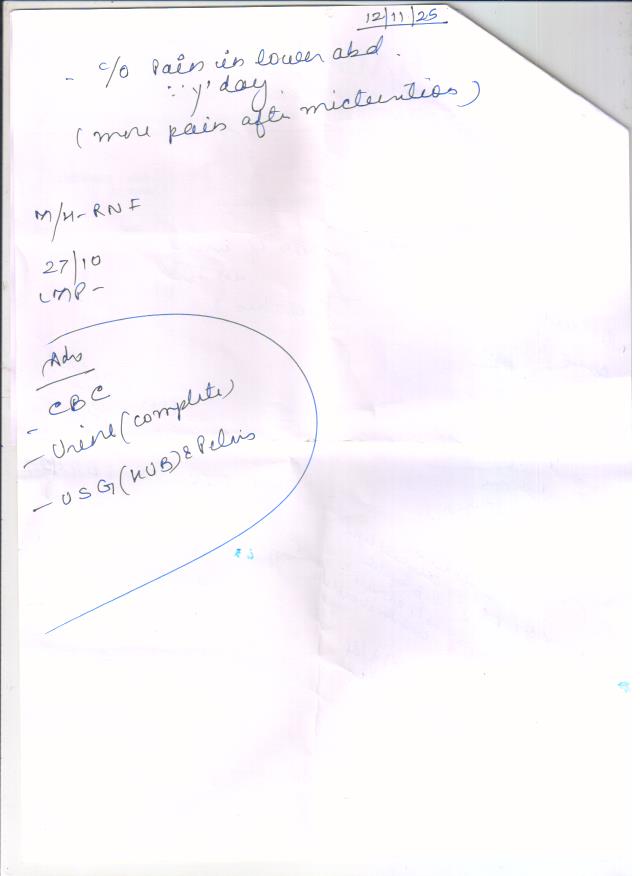 12/11/25
- c/o Pain in lower abd.
∵ y'day.
(more pain after micturition)
M/H - RNF
27/10
LMP -
Adv
- CBC
- Urine (complete)
- USG (KUB) & Pelvis